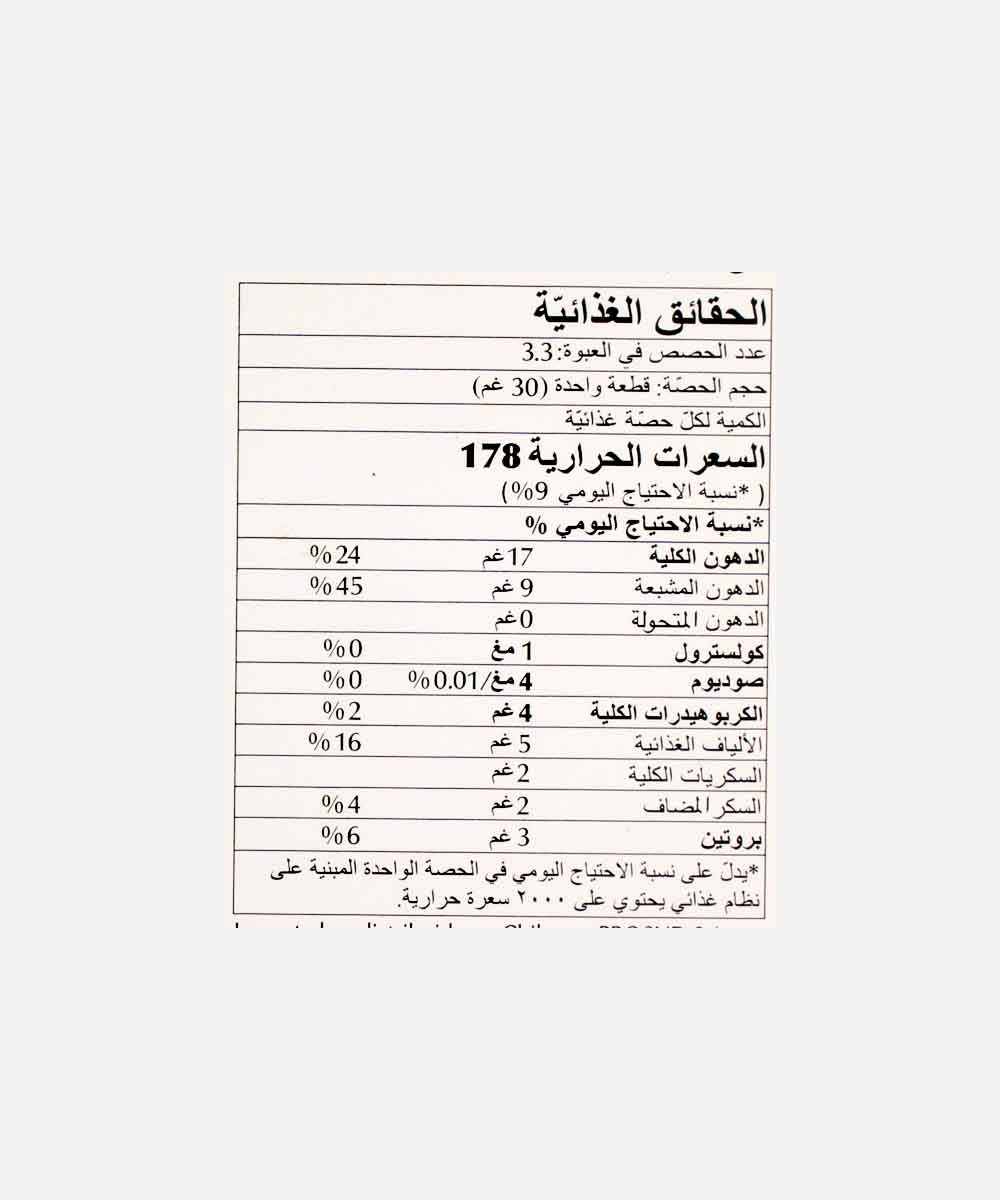 الحقائق الغذائيّة
عدد الحصص في العبوة: 3.3
حجم الحصّة: قطعة واحدة (30 غم)
الكمية لكلّ حصّة غذائيّة
السعرات الحرارية 178
( *نسبة الاحتياج اليومي 9%)
*نسبة الاحتياج اليومي %
الدهون الكلية 17 غم 24%
الدهون المشبعة 9 غم 45%
الدهون المتحولة 0 غم
كولسترول 1 مغ 0%
صوديوم 4 مغ/0.01% 0%
الكربوهيدرات الكلية 4 غم 2%
الألياف الغذائية 5 غم 16%
السكريات الكلية 2 غم
السكر المضاف 2 غم 4%
بروتين 3 غم 6%
*يدلّ على نسبة الاحتياج اليومي في الحصة الواحدة المبنية على
نظام غذائي يحتوي على ٢٠٠٠ سعرة حرارية.